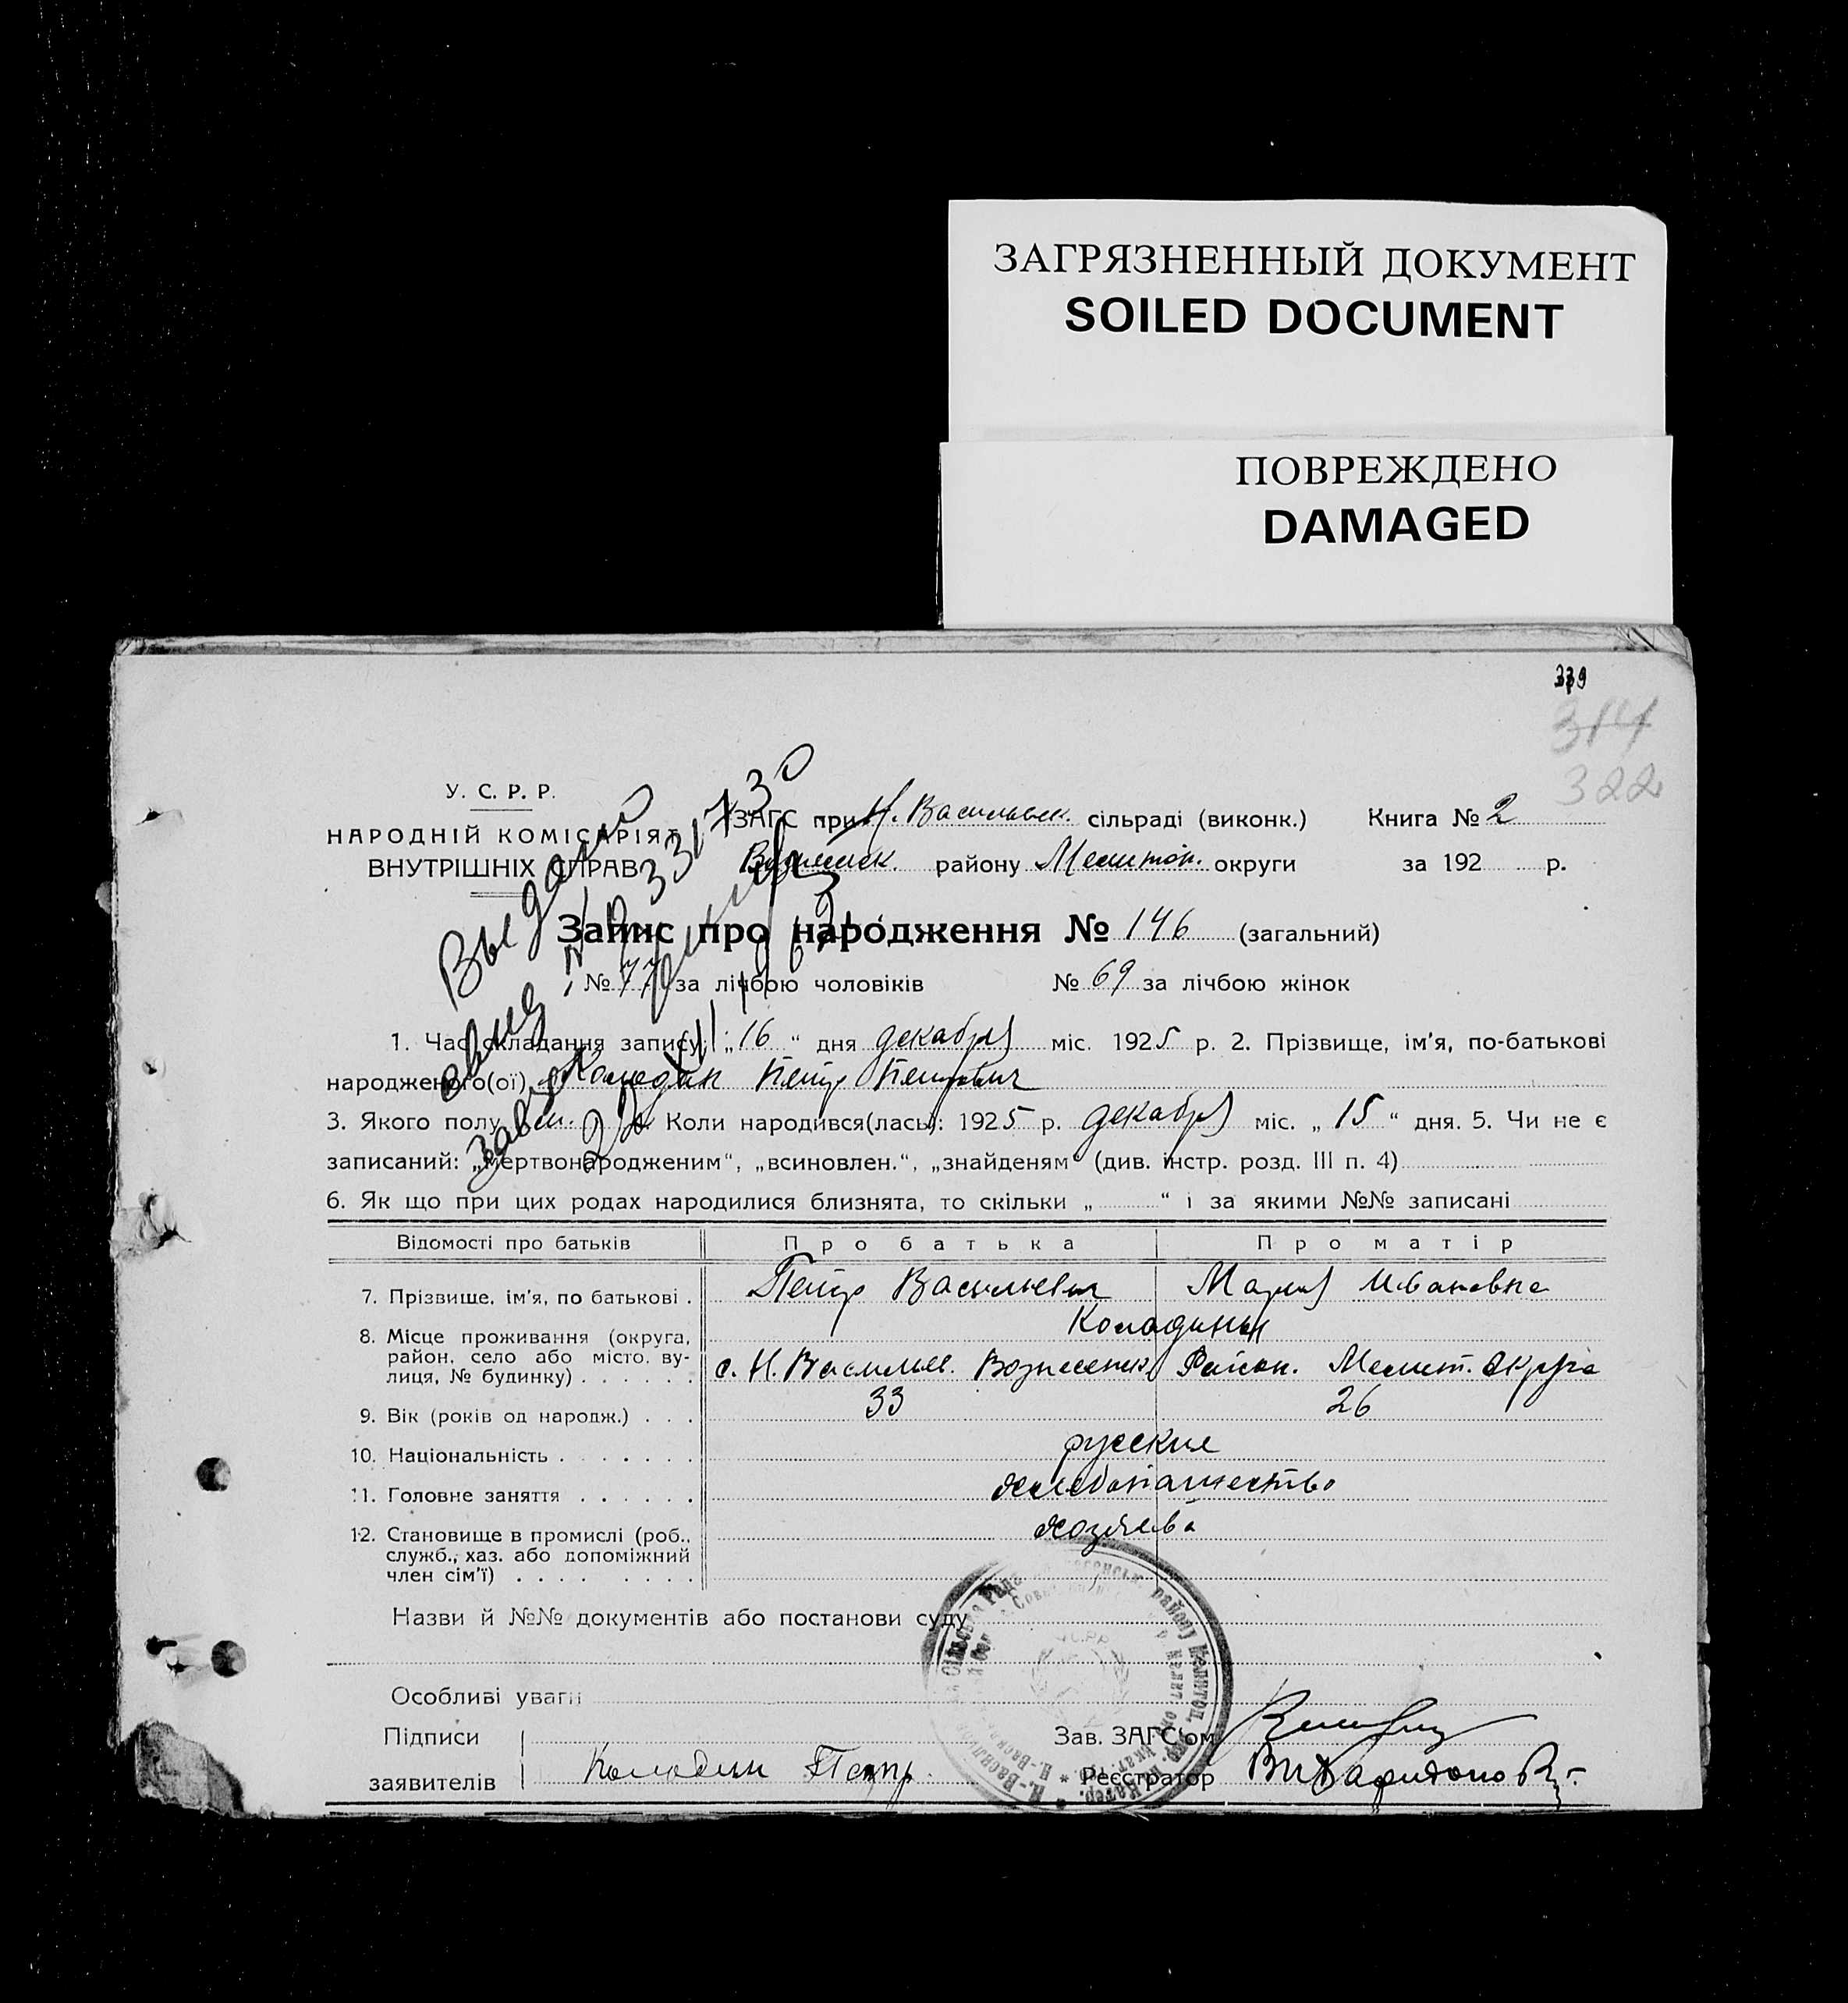 ЗАГРЯЗНЕННЫЙ ДОКУМЕНТ
SOILED DOCUMENT
ПОВРЕЖДЕНО
DAMAGED
314
322
У. С. Р. Р.
НАРОДНІЙ КОМІСАРІЯТ
ВНУТРІШНІХ СПРАВ
ЗАГС при Н. Васильевск. сільраді (виконк.) Книга № 2
району Мелитоп. округи за 192 р.
Запис про народження № 146 (загальний)
№ 77 за лічбою чоловіків № 69 за лічбою жінок
1. Час складання запису: „16“ дня декабря міс. 1925 р. 2. Прізвище, ім'я, по-батькові
народженого(ої) Колодин Петр Петрович
3. Якого полу м. 4. Коли народився(лась): 1925 р. декабря міс. „15“ дня. 5. Чи не є
записаний: „мертвонародженим“, „всиновлен.“, „знайденям“ (див. інстр. розд. III п. 4)
6. Як що при цих родах народилися близнята, то скільки „ “ і за якими №№ записані
Відомості про батьків Про батька Про матір
7. Прізвище, ім'я, по батькові . Петр Васильевич Мария Ивановна
Колодины
8. Місце проживання (округа,
район, село або місто, ву-
лиця, № будинку) . . . . . . с. Н. Васильев. Вознесенск. Район. Мелит. Округа
9. Вік (років од народж.) . . . 33 26
10. Національність . . . . . . . русские
11. Головне заняття . . . . . . хлебопашество
12. Становище в промислі (роб.,
служб., хаз. або допоміжний
член сім'ї) . . . . . . . . хозяева
Назви й №№ документів або постанови суду
Особливі уваги
Підписи
заявителів Колодин Петр
Зав. ЗАГС'ом
Реєстратор
Выданы